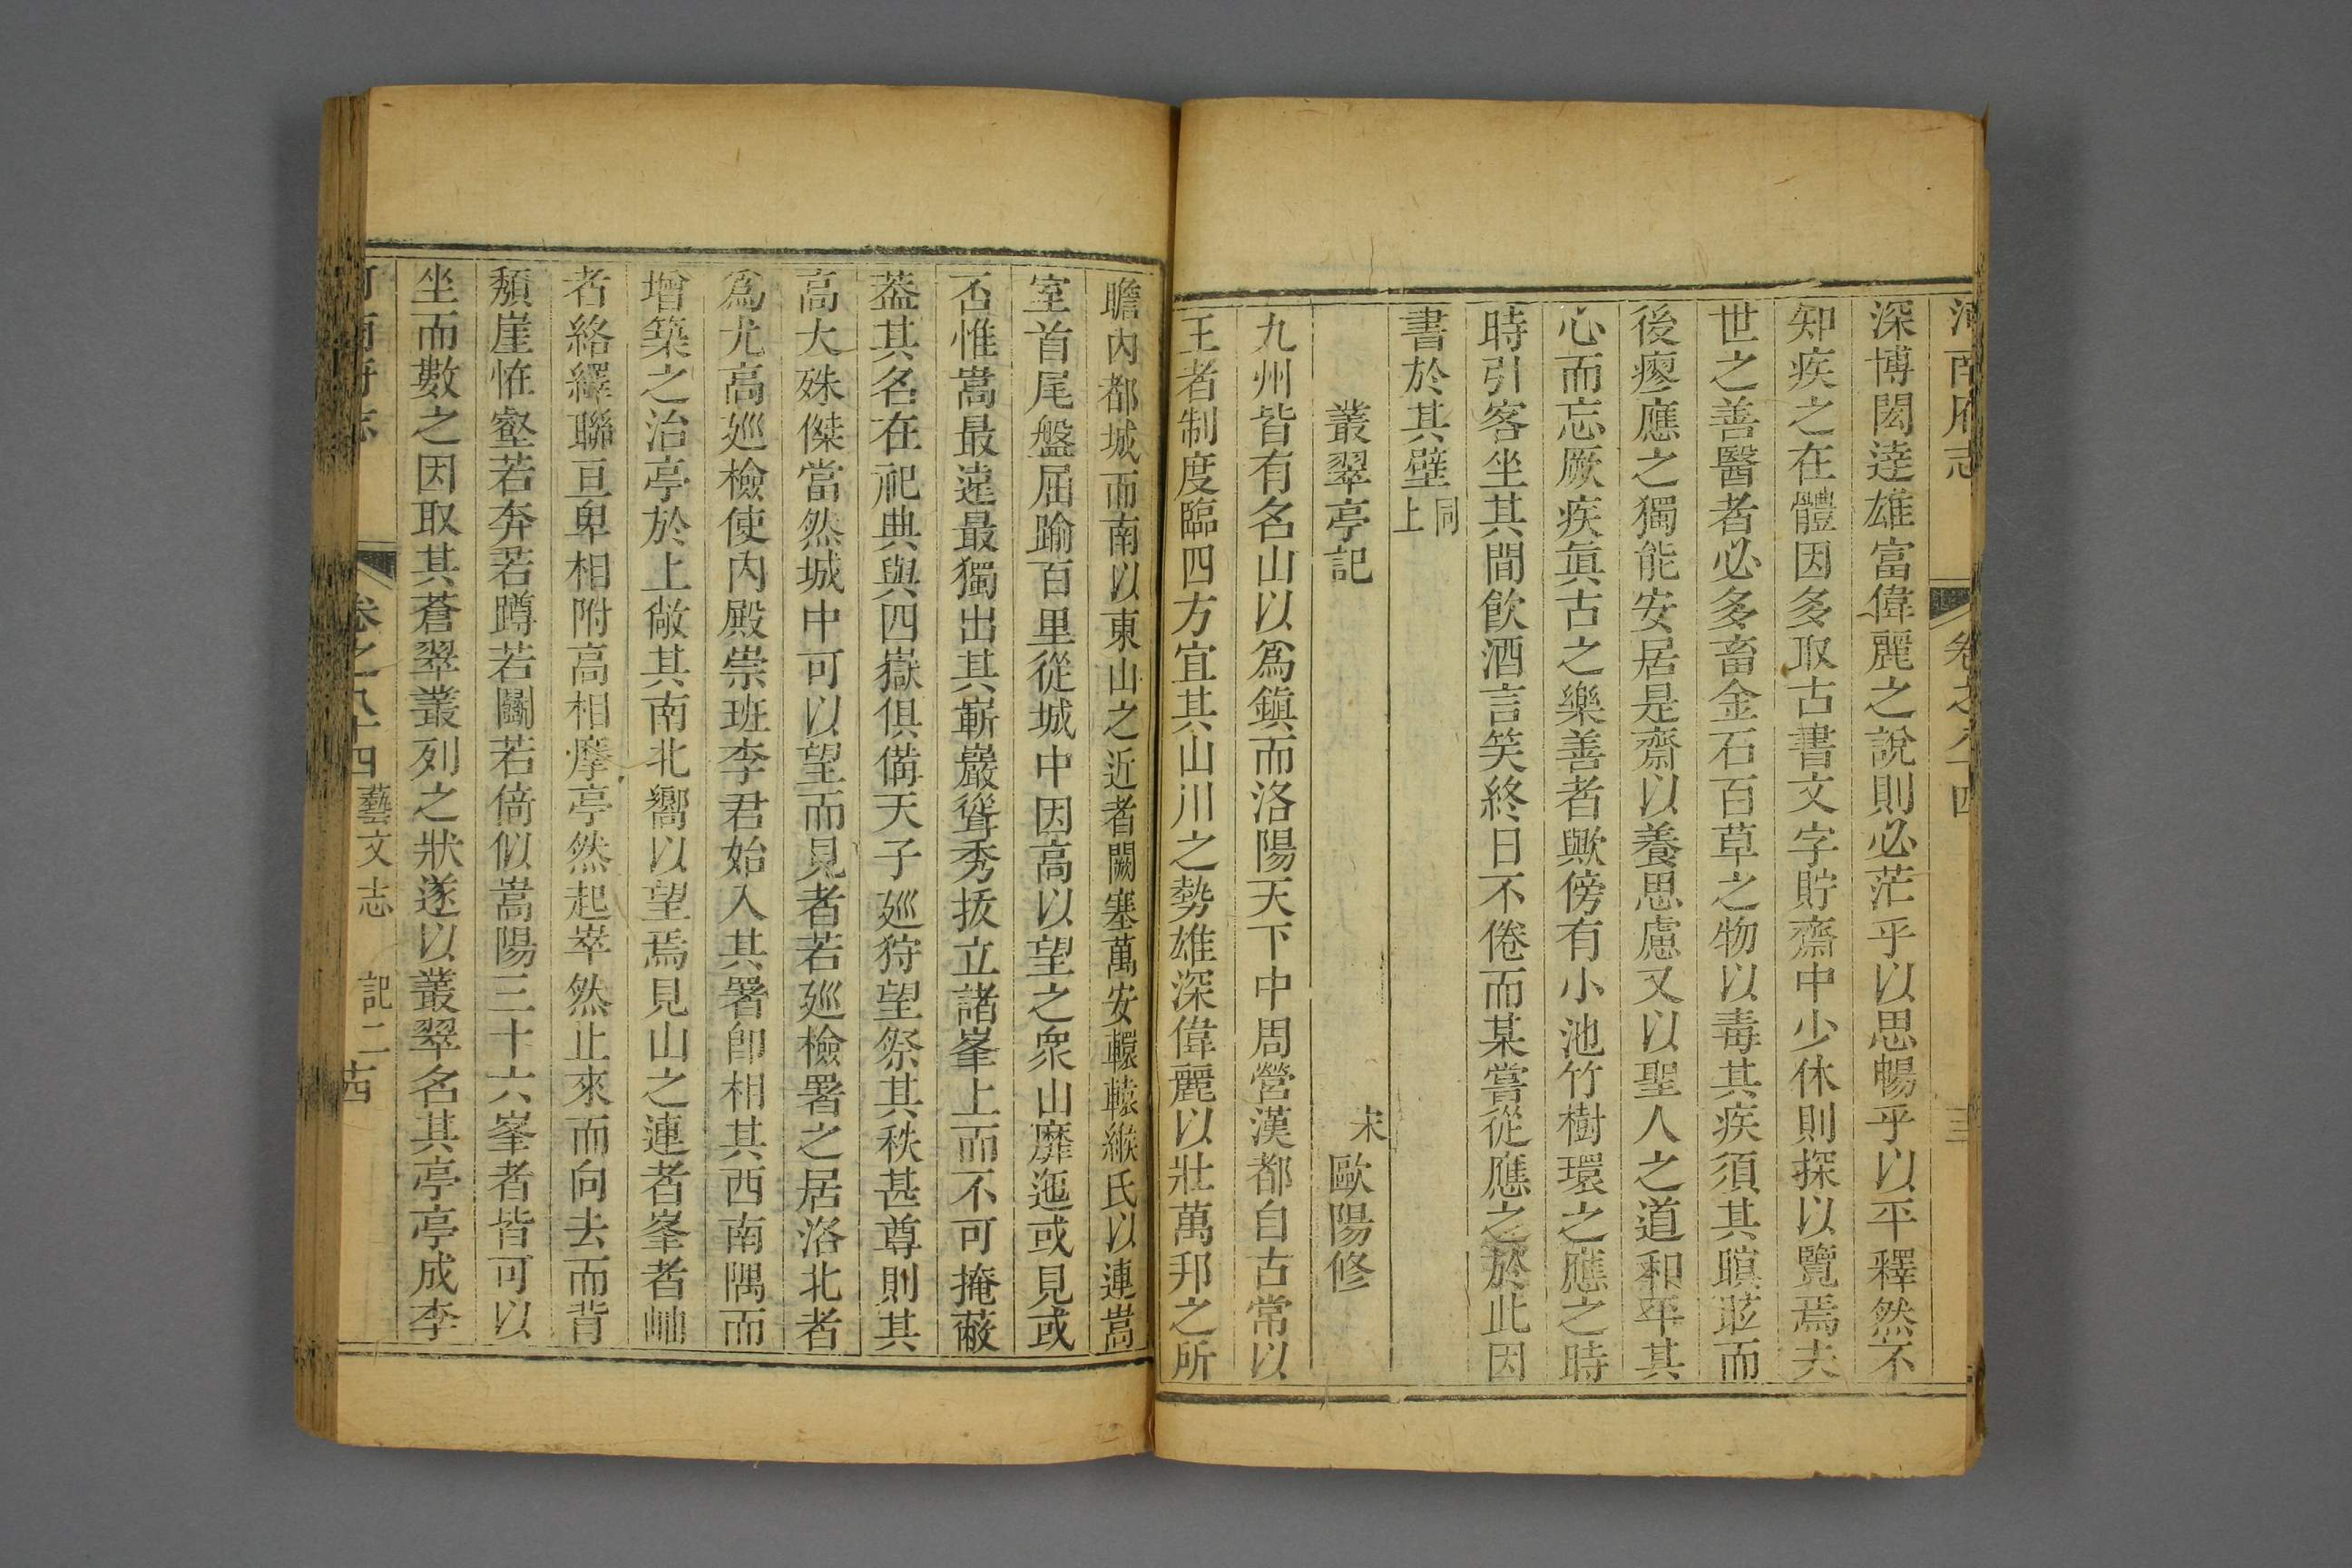 河南府志 卷之八十四
深博閎達雄富偉麗之說則必茫乎以思暢乎以平釋然不
知疾之在體因多取古書文字貯齋中少休則探以覽焉夫
世之善醫者必多畜金石百草之物以毒其疾須其瞑眩而
後瘳應之獨能安居是齋以養思慮又以聖人之道和平其
心而忘厥疾眞古之樂善者歟傍有小池竹樹環之應之時
時引客坐其間飲酒言笑終日不倦而某嘗從應之於此因
書於其壁同上
叢翠亭記 宋 歐陽修
九州皆有名山以爲鎮而洛陽天下中周營漢都自古常以
王者制度臨四方宜其山川之勢雄深偉麗以壯萬邦之所
瞻內都城而南以東山之近者闕塞萬安轘轅緱氏以連嵩
室首尾盤屈踰百里從城中因高以望之衆山靡迤或見或
否惟嵩最遠最獨出其嶄巖聳秀拔立諸峯上而不可掩蔽
蓋其名在祀典與四嶽俱備天子廵狩望祭其秩甚尊則其
高大殊傑當然城中可以望而見者若廵檢署之居洛北者
爲尤高廵檢使內殿崇班李君始入其署卽相其西南隅而
增築之治亭於上敞其南北嚮以望焉見山之連者峯者岫
者絡繹聯亘卑相附高相摩亭然起崒然止來而向去而背
頽崖怪壑若奔若蹲若鬭若倚似嵩陽三十六峯者皆可以
坐而數之因取其蒼翠叢列之狀遂以叢翠名其亭亭成李
河南府志 卷之八十四 藝文志 記二 古